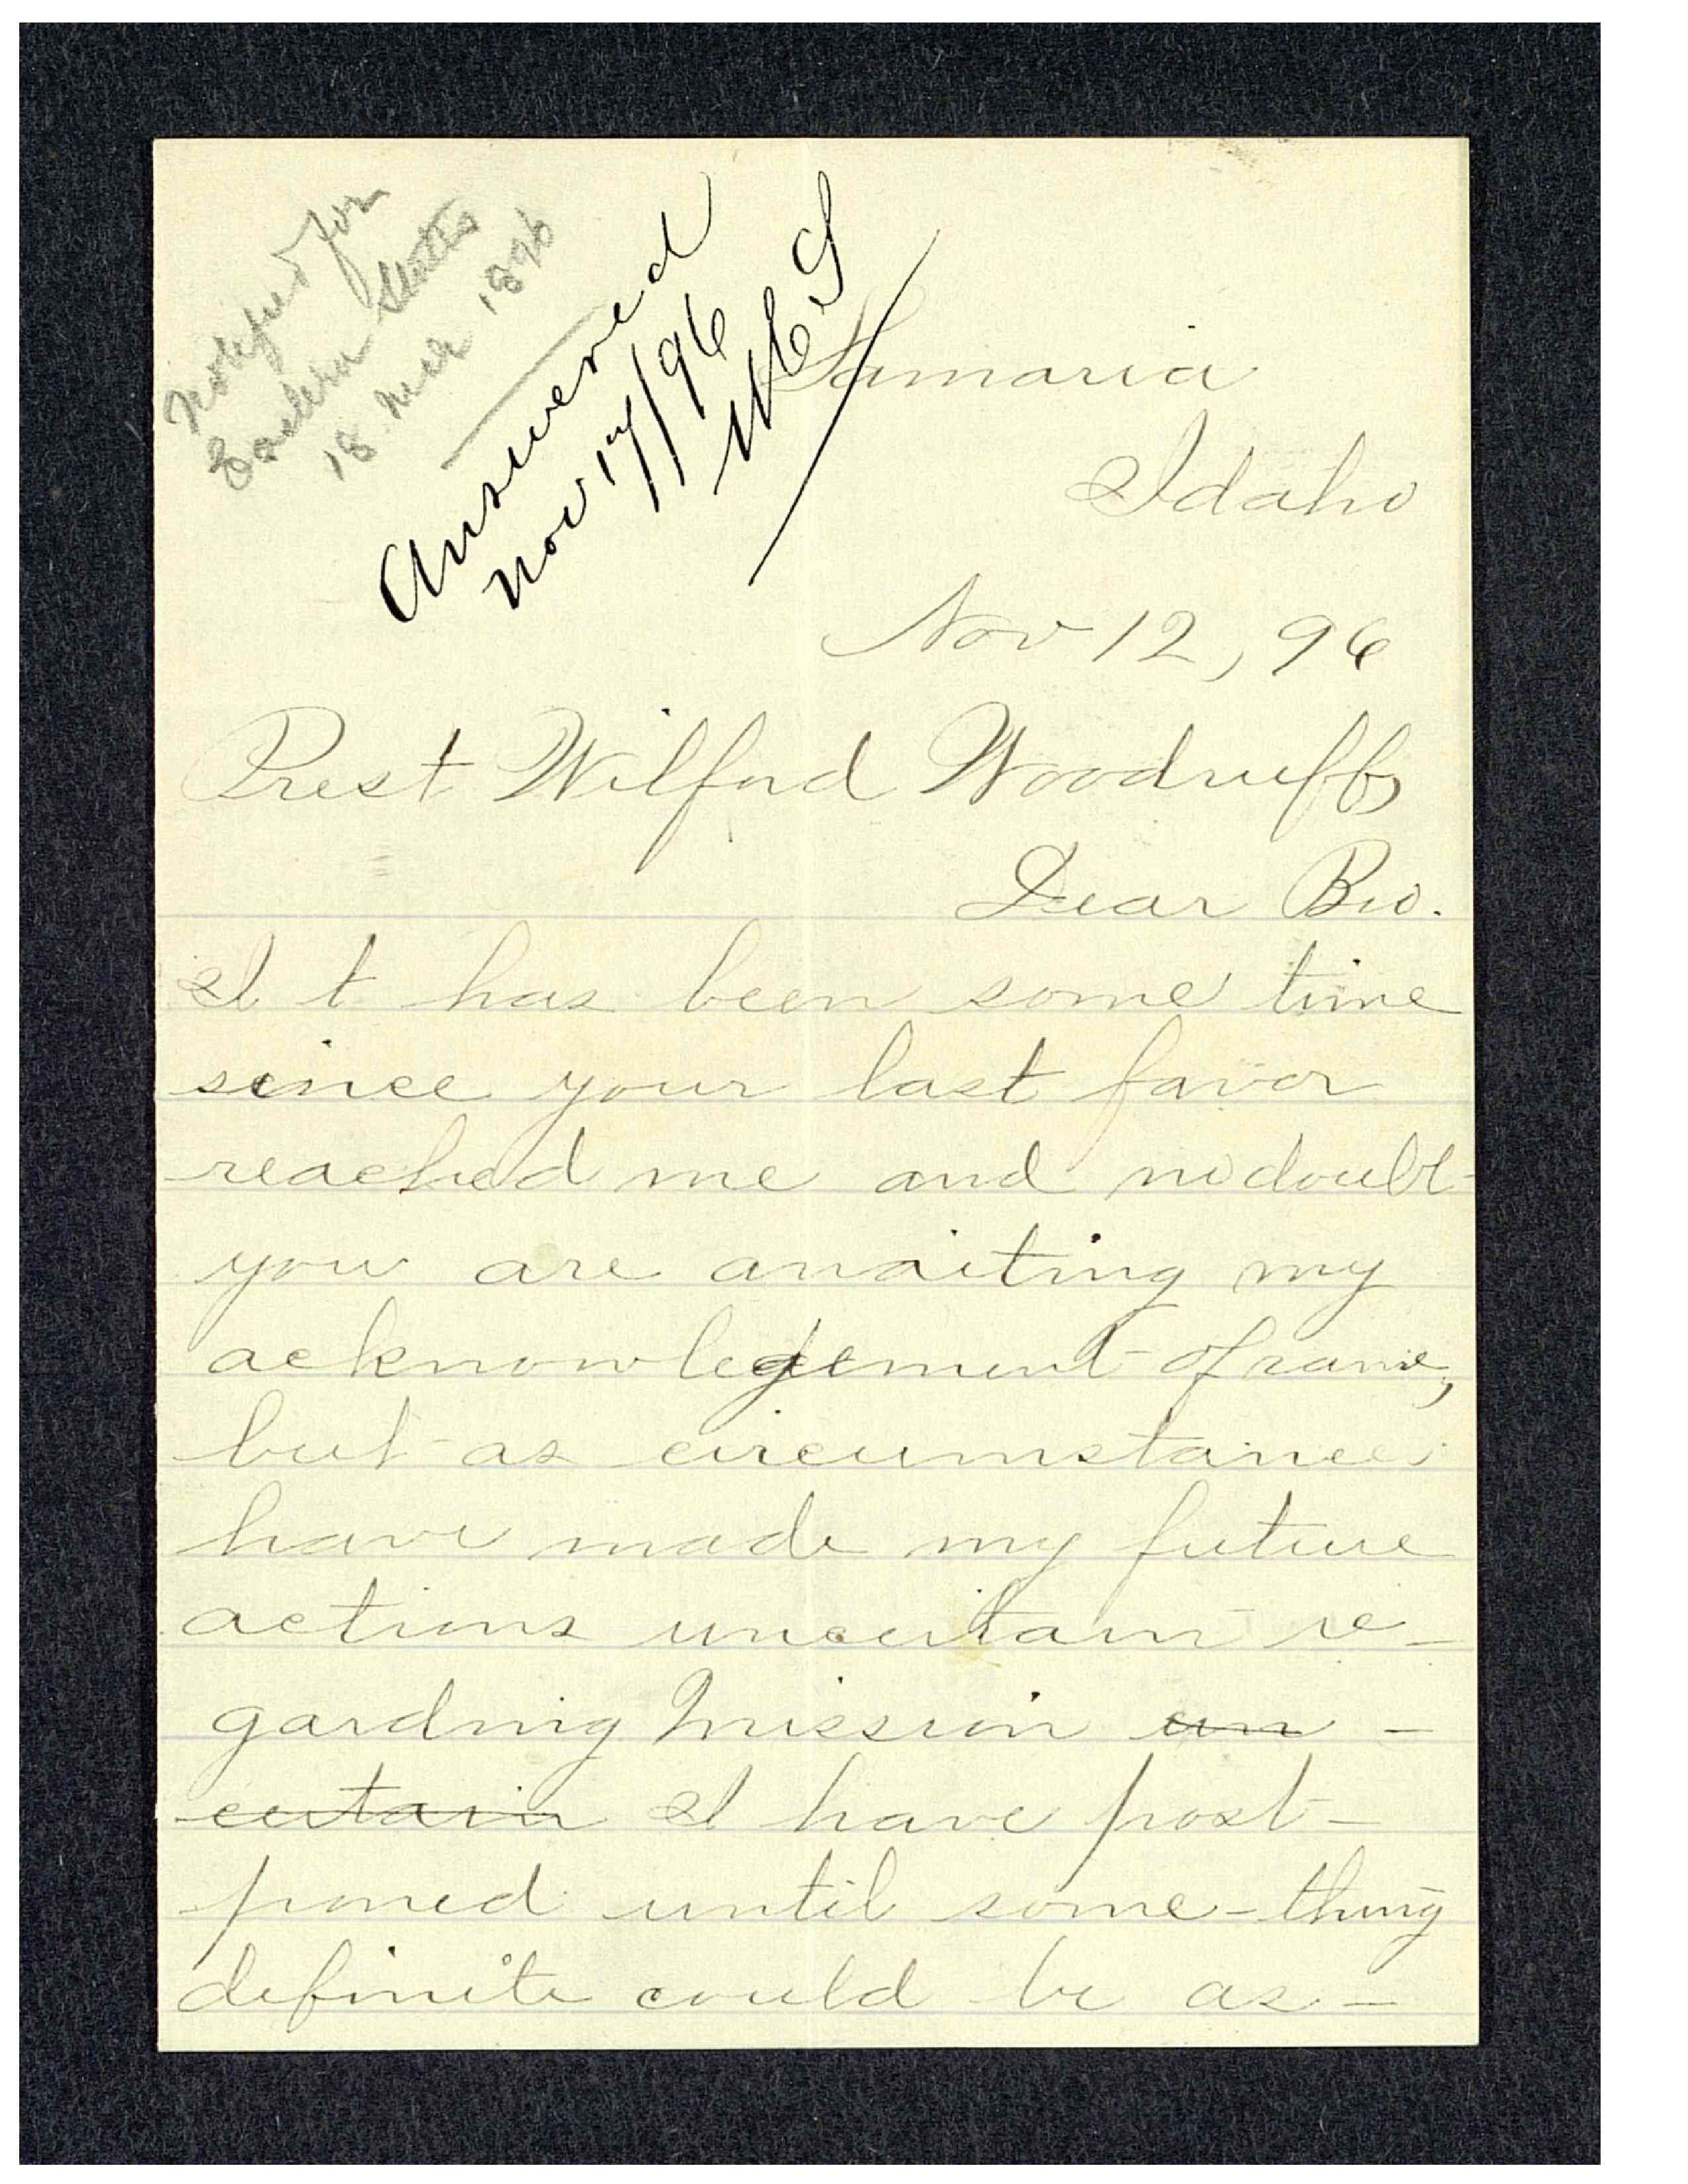 Notified for
Eastern States
18 Mch 1896
Answered
Nov 17/96
Samaria
Idaho
Nov 12, 96
Prest Wilford Woodruff,
Dear Bro.
It has been some time
since your last favor
reached me and no doubt
you are awaiting my
acknowledgement of same,
but as circumstances
have made my future
actions uncertain re-
garding Mission un-
certain I have post-
poned until some-thing
definite could be as-